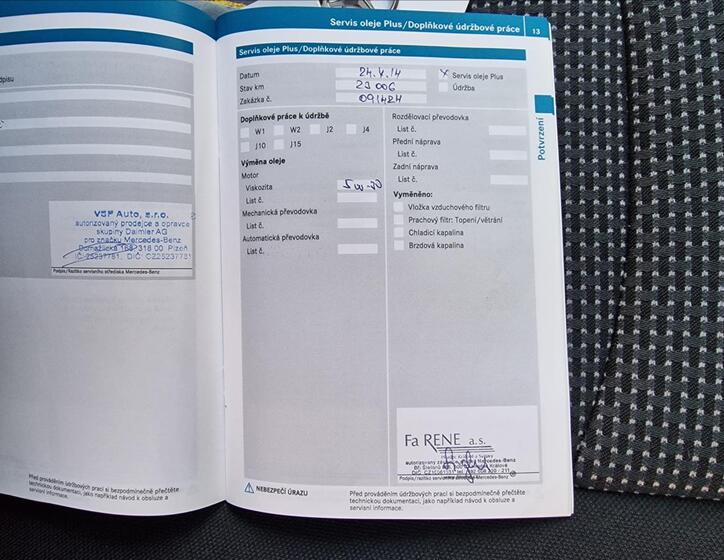 dpisu
V5P Auto, s.r.o.
autorizovaný prodejce a opravce
skupiny Daimler AG
pro značku Mercedes-Benz
Domažlická 168, 318 00 Plzeň
IČ 25237781, DIČ: CZ25237781
Podpis/Razítko servisního střediska Mercedes-Benz
Před prováděním údržbových prací si bezpodmínečně přečtěte
technickou dokumentaci, jako například návod k obsluze a
servisní informace.
Servis oleje Plus/Doplňkové údržbové práce 13
Servis oleje Plus/Doplňkové údržbové práce
Datum 24.4.14
Stav km 23 006
Zakázka č. 091424
X Servis oleje Plus
Údržba
Potvrzení
Doplňkové práce k údržbě
W1 W2 J2 J4
J10 J15
Výměna oleje
Motor
Viskozita
List č.
Mechanická převodovka
List č.
Automatická převodovka
List č.
Rozdělovací převodovka
List č.
Přední náprava
List č.
Zadní náprava
List č.
Vyměněno:
Vložka vzduchového filtru
Prachový filtr: Topení/větrání
Chladicí kapalina
Brzdová kapalina
Fa RENE a.s.
autorizovaný Mercedes-Benz
Králové
Podpis/razítko servisního střediska Mercedes-Benz
NEBEZPEČÍ ÚRAZU
Před prováděním údržbových prací si bezpodmínečně přečtěte
technickou dokumentaci, jako například návod k obsluze a
servisní informace.